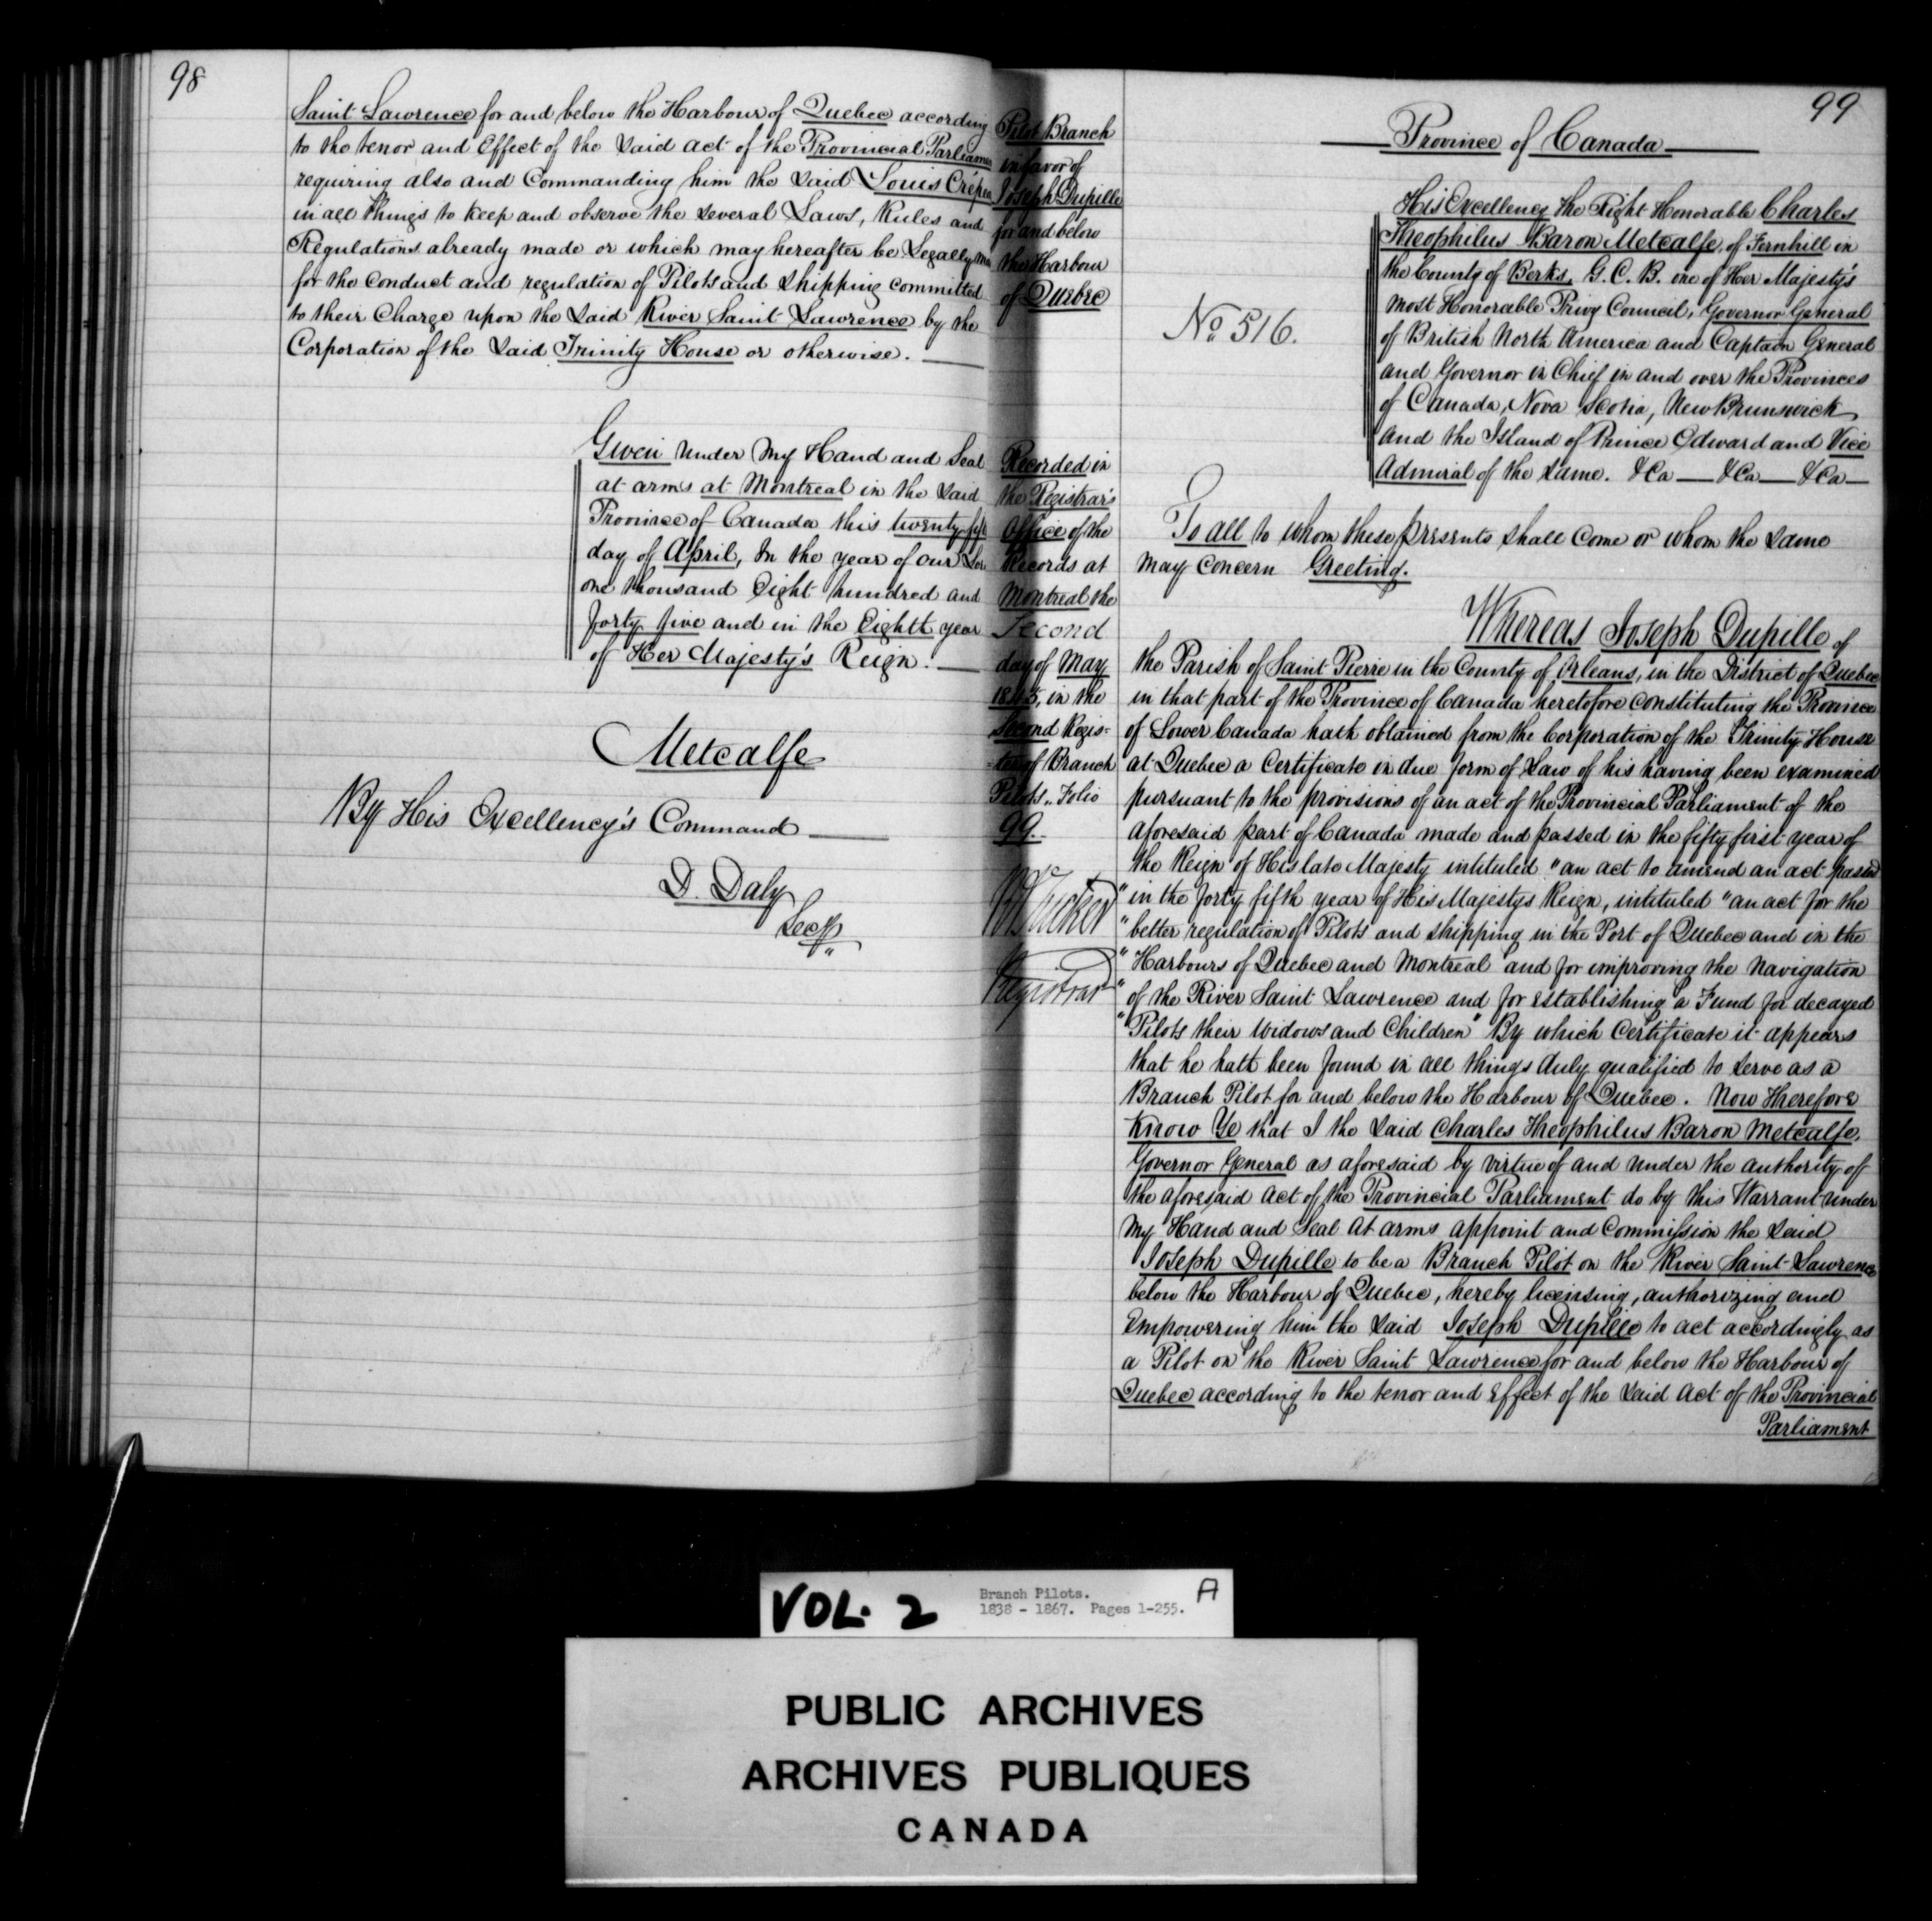 98
Saint Lawrence for and below the Harbour of Quebec according
to the tenor and Effect of the said act of the Provincial Parliamen
requiring also and Commanding him the said Louis Crépea
in all things to keep and observe the several Laws, Rules and
Regulations already made or which may hereafter be Legally ma
for the conduct and regulation of Pilots and Shipping committed
to their Charge upon the said River Saint Lawrence by the
Corporation of the said Trinity House or otherwise.
Given under My Hand and Seal
at arms at Montreal in the said
Province of Canada this twenty fift
day of April, In the year of our Lor
one thousand Eight hundred and
forty five and in the Eighth year
of Her Majesty's Reign.
Metcalfe
By His Excellency's Command
D. Daly
Secy
Pilot Branch
in favor of
Joseph Dupille
for and below
the Harbour
of Quebec
Recorded in
the Registrar's
Office of the
Records at
Montreal the
Second
day of May
1845, in the
Second Regis-
-ter of Branch
Pilots,, Folio
99.
Tucker
Registrar
99
Province of Canada
No 516.
His Excellency the Right Honorable Charles
Theophilus Baron Metcalfe, of Fernhill in
the County of Berks, G.C.B. one of Her Majesty's
Most Honorable Privy Council, Governor General
of British North America and Captain General
and Governor in Chief in and over the Provinces
of Canada, Nova Scotia, New Brunswick
and the Island of Prince Edward and Vice
Admiral of the same. &Ca — &Ca — &Ca —
To all to whom these presents shall come or whom the same
may concern Greeting.
Whereas Joseph Dupille of
the Parish of Saint Pierre in the County of Orleans, in the District of Quebec
in that part of the Province of Canada heretofore constituting the Province
of Lower Canada hath obtained from the Corporation of the Trinity House
at Quebec a Certificate in due form of Law of his having been examined
pursuant to the provisions of an act of the Provincial Parliament of the
aforesaid part of Canada made and passed in the fifty first year of
the Reign of His late Majesty intituled "an act to amend an act passed
" in the forty fifth year of His Majestys Reign, intituled "an act for the
" better regulation of Pilots and shipping in the Port of Quebec and in the
" Harbours of Quebec and Montreal and for improving the navigation
" of the River Saint Lawrence and for establishing a Fund for decayed
" Pilots their widows and Children" By which Certificate it appears
that he hath been found in all things duly qualified to serve as a
Branch Pilot for and below the Harbour of Quebec. Now Therefore
Know Ye that I the said Charles Theophilus Baron Metcalfe,
Governor General as aforesaid by virtue of and under the authority of
the aforesaid act of the Provincial Parliament do by this Warrant under
My Hand and Seal at arms appoint and Commission the said
Joseph Dupille to be a Branch Pilot on the River Saint Lawrence
below the Harbour of Quebec, hereby licensing, authorizing and
Empowering him the said Joseph Dupille to act accordingly as
a Pilot on the River Saint Lawrence for and below the Harbour of
Quebec according to the tenor and Effect of the said Act of the Provincial
Parliament
VOL. 2
Branch Pilots.
1838 - 1867. Pages 1-255.
A
PUBLIC ARCHIVES
ARCHIVES PUBLIQUES
CANADA